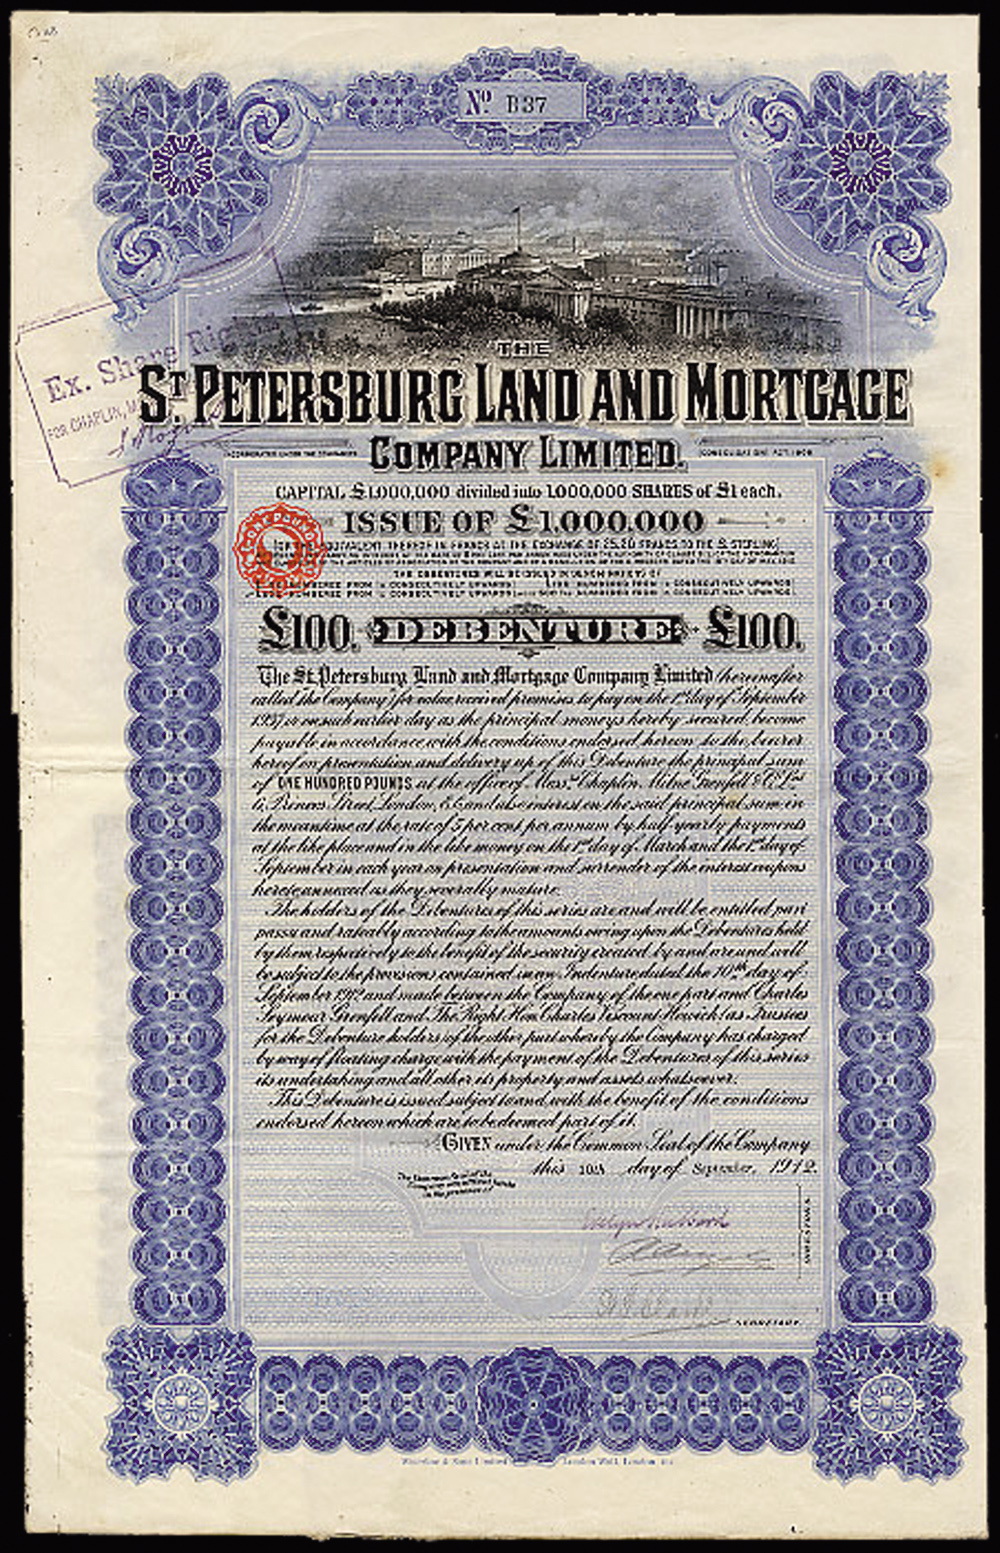 No B37
THE
ST PETERSBURG LAND AND MORTGAGE
Ex. Share
FOR CHAPLIN, M
COMPANY LIMITED.
INCORPORATED UNDER THE COMPANIES
CONSOLIDATION ACT, 1908
CAPITAL £1,000,000 divided into 1,000,000 SHARES of £1 each.
ISSUE OF £1,000,000
ONE POUND
EQUIVALENT THEREOF IN FRANCE AT THE EXCHANGE OF 25.20 FRANCS TO THE £ STERLING)
THE DEBENTURES WILL BE ISSUED IN DENOMINATIONS OF
NUMBERED FROM 1 CONSECUTIVELY UPWARDS
£100. DEBENTURE £100.
The St. Petersburg Land and Mortgage Company Limited (hereinafter
called "the Company") for value received promises to pay on the 1st day of September
1937 or on such earlier day as the principal moneys hereby secured become
payable in accordance with the conditions endorsed hereon to the bearer
hereof on presentation and delivery up of this Debenture the principal sum
of ONE HUNDRED POUNDS at the office of Messrs Chaplin, Milne Grenfell & Co Ltd
6, Princes Street, London, E.C. and also interest on the said principal sum in
the meantime at the rate of 5 per cent per annum by half-yearly payments
at the like place and in the like money on the 1st day of March and the 1st day of
September in each year on presentation and surrender of the interest coupons
hereto annexed as they severally mature.
The holders of the Debentures of this series are and will be entitled pari
passu and rateably according to the amounts owing upon the Debentures held
by them respectively to the benefit of the security created by and are and will
be subject to the provisions contained in an Indenture dated the 10th day of
September 1912 and made between the Company of the one part and Charles
Seymour Grenfell and The Right Hon. Charles Viscount Howick (as Trustees
for the Debenture holders) of the other part whereby the Company has charged
by way of floating charge with the payment of the Debentures of this series
its undertaking and all other its property and assets whatsoever.
This Debenture is issued subject to and with the benefit of the conditions
endorsed hereon which are to be deemed part of it.
GIVEN under the Common Seal of the Company
this 10th day of September, 1912.
The Common Seal of the
Company was affixed hereto
in the presence of
Evelyn Hubbard
DIRECTORS.
SECRETARY.
Waterlow & Sons Limited London Wall, London,